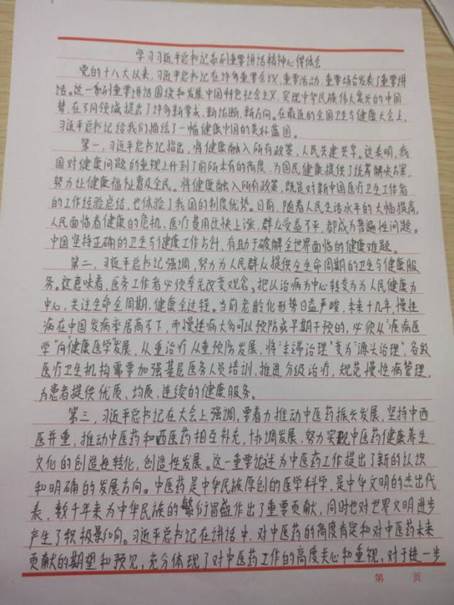 学习习近平总书记系列重要讲话精神心得体会
党的十八大以来，习近平总书记在许多重要会议、重要活动、重要场合发表了重要讲
话。这一系列重要讲话围绕和发展中国特色社会主义、实现中华民族伟大复兴的中国
梦，在不同领域提出了许多新要求、新论断、新方向。在最近的全国卫生与健康大会上，
习近平总书记给我们描绘了一幅健康中国的美好蓝图。
第一，习近平总书记指出，将健康融入所有政策，人民共建共享。这表明，我
国对健康问题的重视上升到了前所未有的高度，为国民健康提供了统筹解决方案，
努力让健康福祉惠及全民。将健康融入所有政策，既是对新中国医疗卫生工作者
的工作经验总结，也体验了我国的制度优势。日前，随着人民生活水平的大幅提高，
人民面临着健康的危机，医疗费用比快上涨，群众受益不平，都成为普遍性问题。
中国坚持正确的卫生与健康工作方针，有助于破解全世界面临的健康难题。
第二，习近平总书记强调，努力为人民群众提供全生命周期的卫生与健康服
务。这意味着，医务工作者必须率先改变观念。把从治病为中心转变为为人民健康为
中心，关注生命全周期、健康全过程。当前老龄化形势日益严峻，未来十几年，慢性
病在中国发病率居高不下，而慢性病大多可以预防或早期干预的，必须从"疾病医
学"向健康医学发展，从重治疗从重预防发展，将"末端治理"变为"源头治理"，各级
医疗卫生机构需要加强基层医务人员培训，推进分级治疗，规范慢性病管理，
为患者提供优质、均质、连续的健康服务。
第三，习近平总书记在大会上强调，要着力推动中医药振兴发展，坚持中西
医并重，推动中医药和西医药相互补充、协调发展，努力实现中医药健康养生
文化的创造性转化、创造性发展。这一重要论述为中医药工作提出了新的认识
和明确的发展方向。中医药是中华民族原创的医学科学，是中华文明的杰出代
表，数千年来为中华民族的繁衍昌盛作出了重要贡献，同时也对世界文明进步
产生了积极影响。习近平总书记在讲话中，对中医药的高度肯定和对中医药未来
贡献的期望和预见，充分体现了对中医药工作的高度关心和重视，对于进一步
第 页